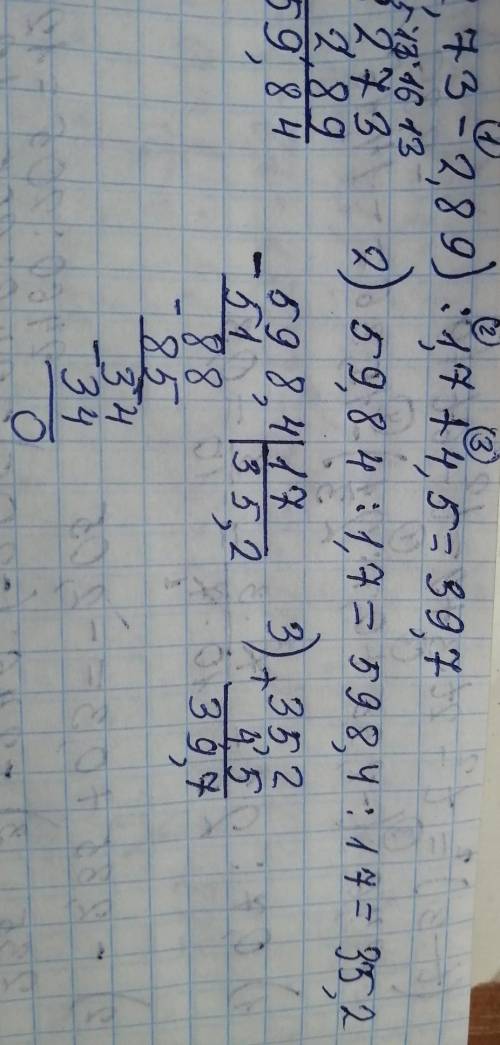 73 - 2,89) : 1,7 + 4,5 = 39,7
① ② ③
13 16 13
2 7 3
2 89
59,84
2) 59,84 : 1,7 = 598,4 : 17 = 35,2
- 598,4 | 17
51 | 35,2
- 88
85
- 34
34
0
3) + 352
4,5
39,7